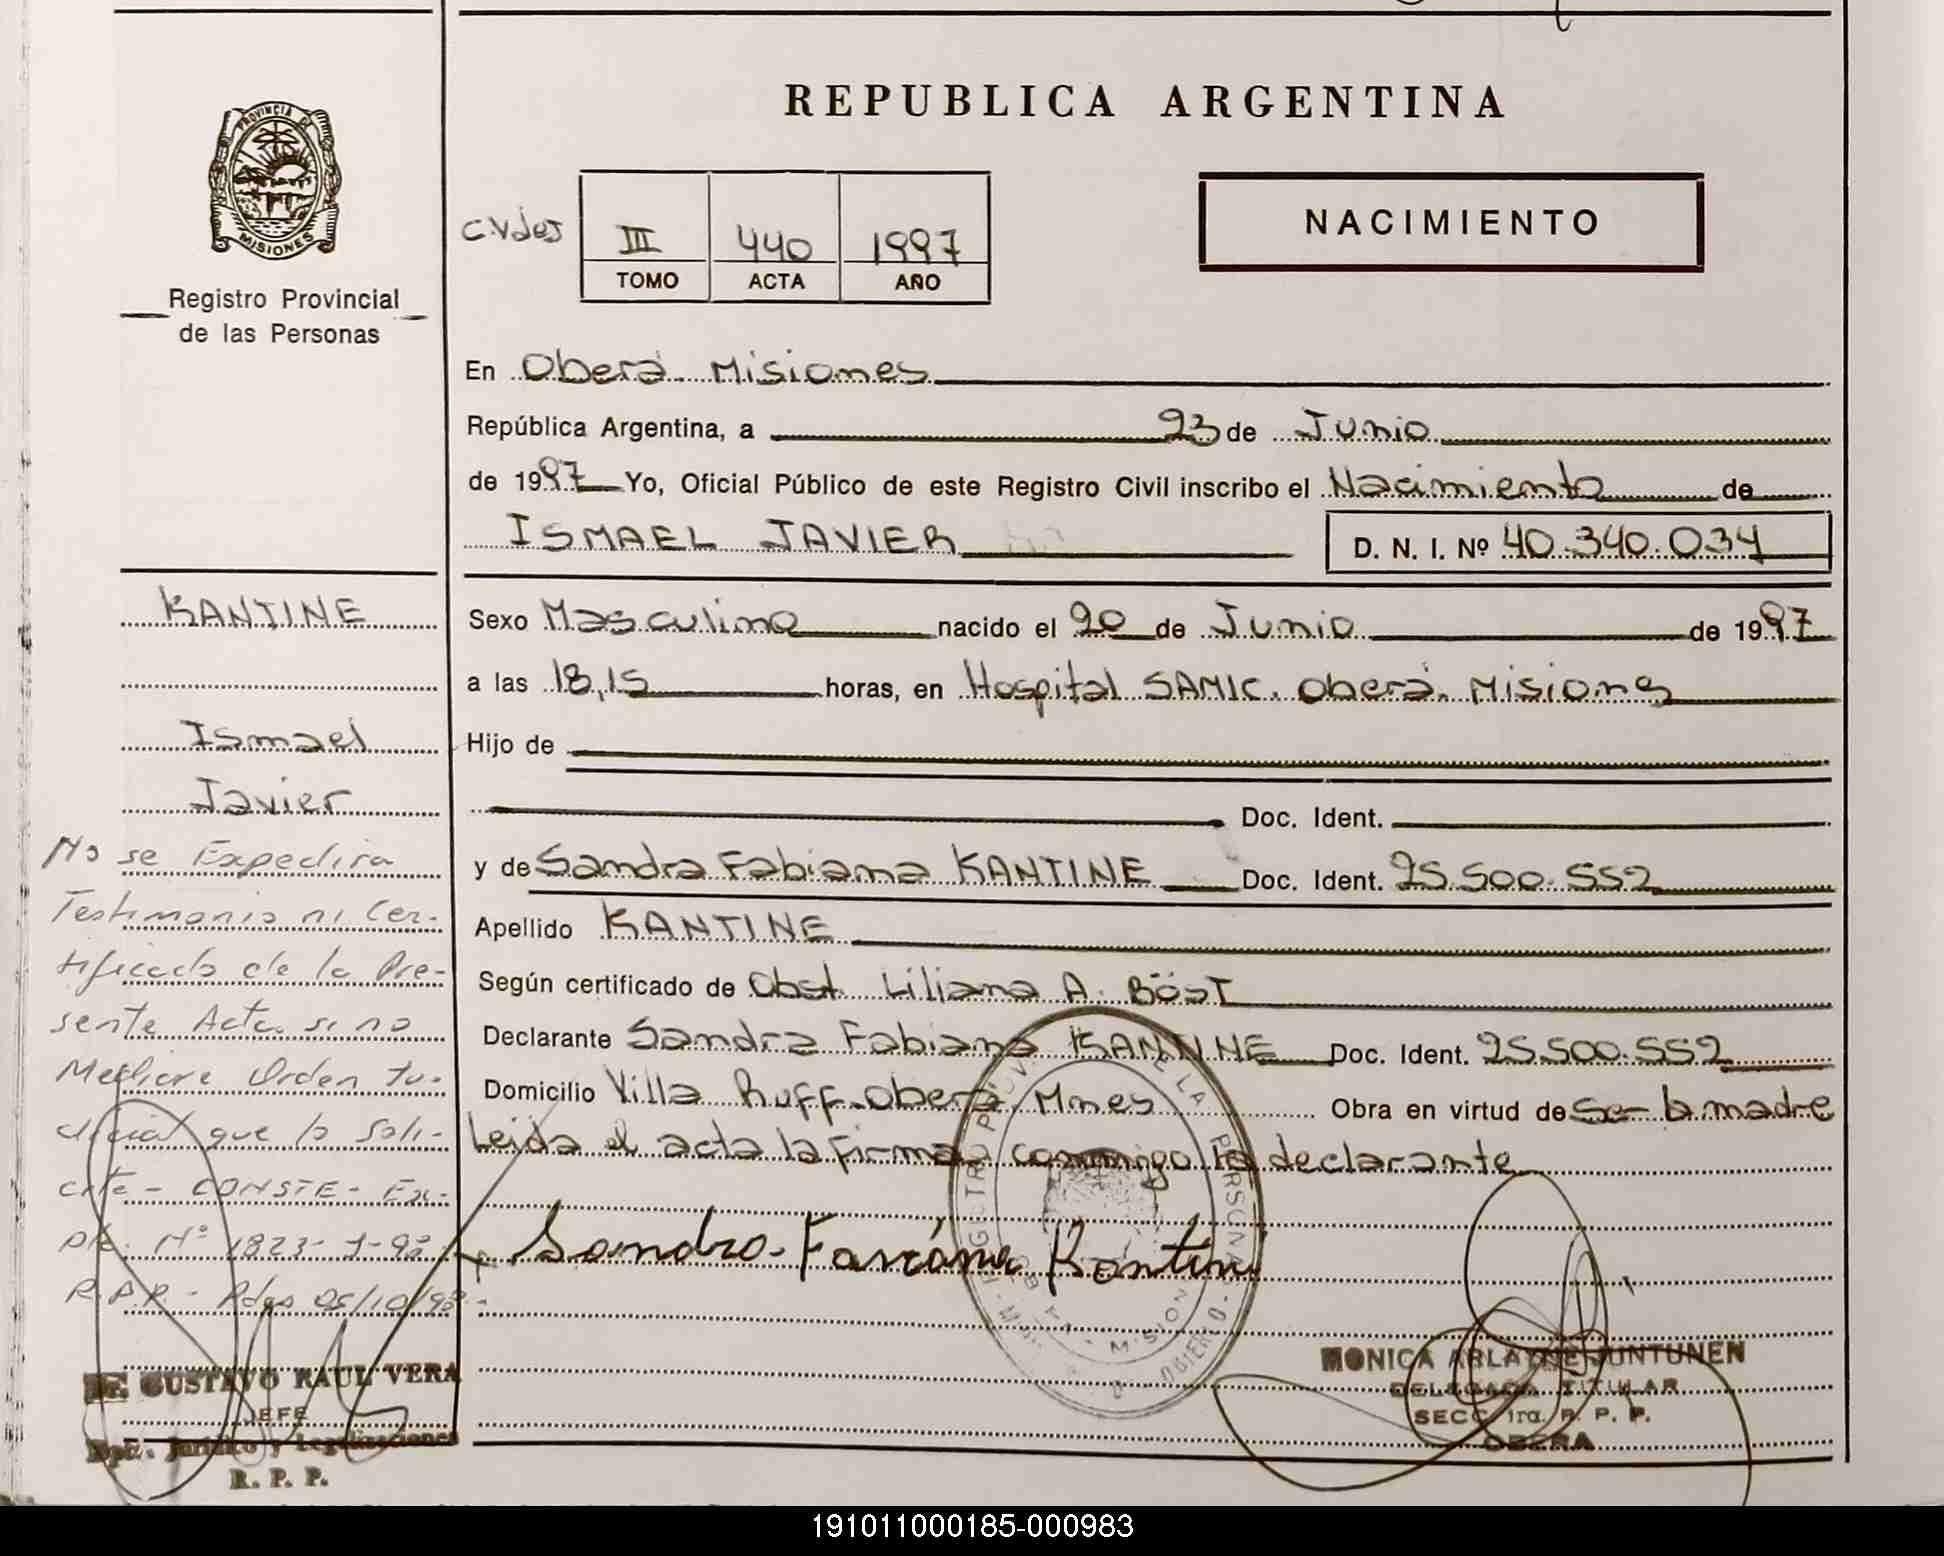 REPUBLICA ARGENTINA
PROVINCIA DE
MISIONES
Registro Provincial
de las Personas
III 440 1997
TOMO ACTA AÑO
NACIMIENTO
En Oberá Misiones
República Argentina, a 23 de Junio
de 1997 Yo, Oficial Público de este Registro Civil inscribo el Nacimiento de
ISMAEL JAVIER D. N. I. Nº 40.340.034
KANTINE
Ismael
Javier
Sexo Masculino nacido el 20 de Junio de 1997
a las 18,15 horas, en Hospital SAMIC. Oberá. Misiones
Hijo de
Doc. Ident.
y de Sandra Fabiana KANTINE Doc. Ident. 25.500.552
Apellido KANTINE
Según certificado de Obst. Liliana A. BÖST
Declarante Sandra Fabiana KANTINE Doc. Ident. 25.500.552
Domicilio Villa Ruff. Oberá, Mnes Obra en virtud de Ser la madre
Leida el acta la firma conmigo la declarante
No se Expedira
Testimonio ni Cer-
tificado de la Pre-
sente Acta si no
Mediare Orden Ju-
dicial que lo Soli-
cite - CONSTE - Ex-
pte. Nº 1823-
R.P.P. - Pdas
GUSTAVO RAUL VERA
JEFE
Dpt. Jurídico y Legalizaciones
R. P. P.
MONICA ARLAYNE JUNTUNEN
DELEGADA TITULAR
SECC. 1ra. R. P. P.
OBERA
191011000185-000983